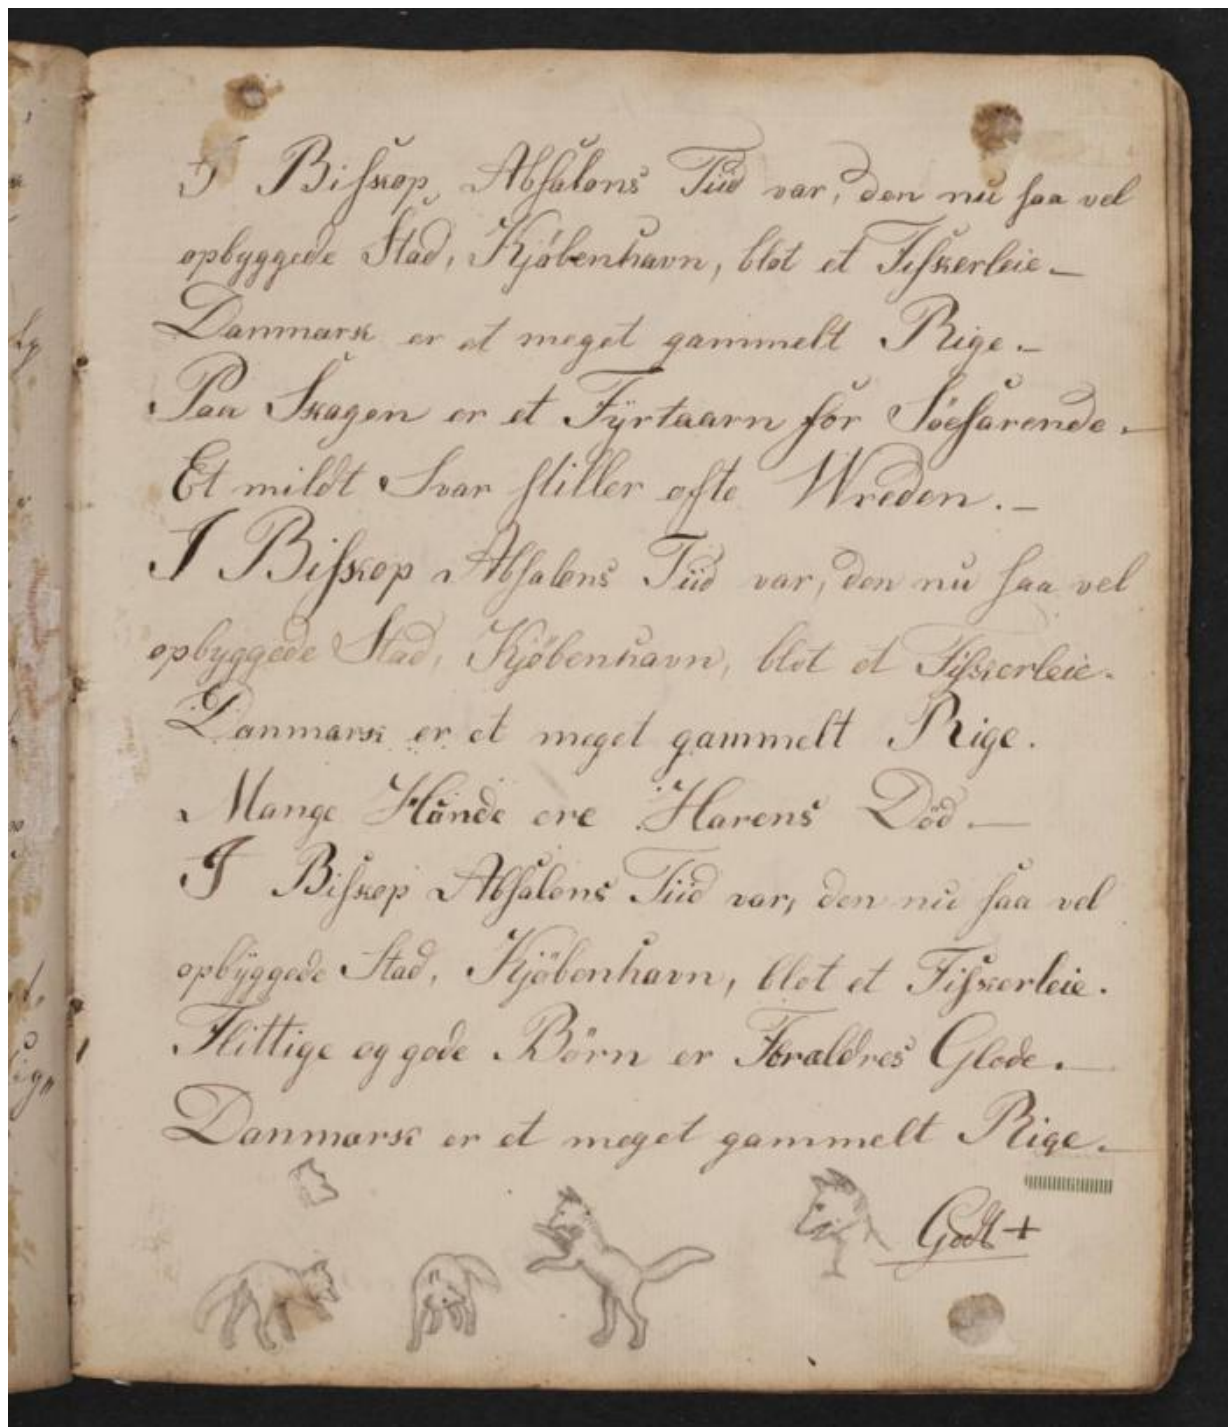 I Biskop Absalons Tiid var, den nu saa vel
opbyggede Stad, Kjöbenhavn, blot et Fiskerleie.
Danmark er et meget gammelt Rige.
Paa Skagen er et Fÿrtaarn for Söefarende.
Et mildt Svar stiller ofte Wreden.
I Biskop Absalons Tiid var, den nu saa vel
opbyggede Stad, Kjöbenhavn, blot et Fiskerleie.
Danmark er et meget gammelt Rige.
Mange Hunde ere Harens Död.
I Biskop Absalons Tiid var, den nu saa vel
opbÿggede Stad, Kjöbenhavn, blot et Fiskerleie.
Flittige og gode Börn er Forældres Glæde.
Danmark er et meget gammelt Rige.
Godt +